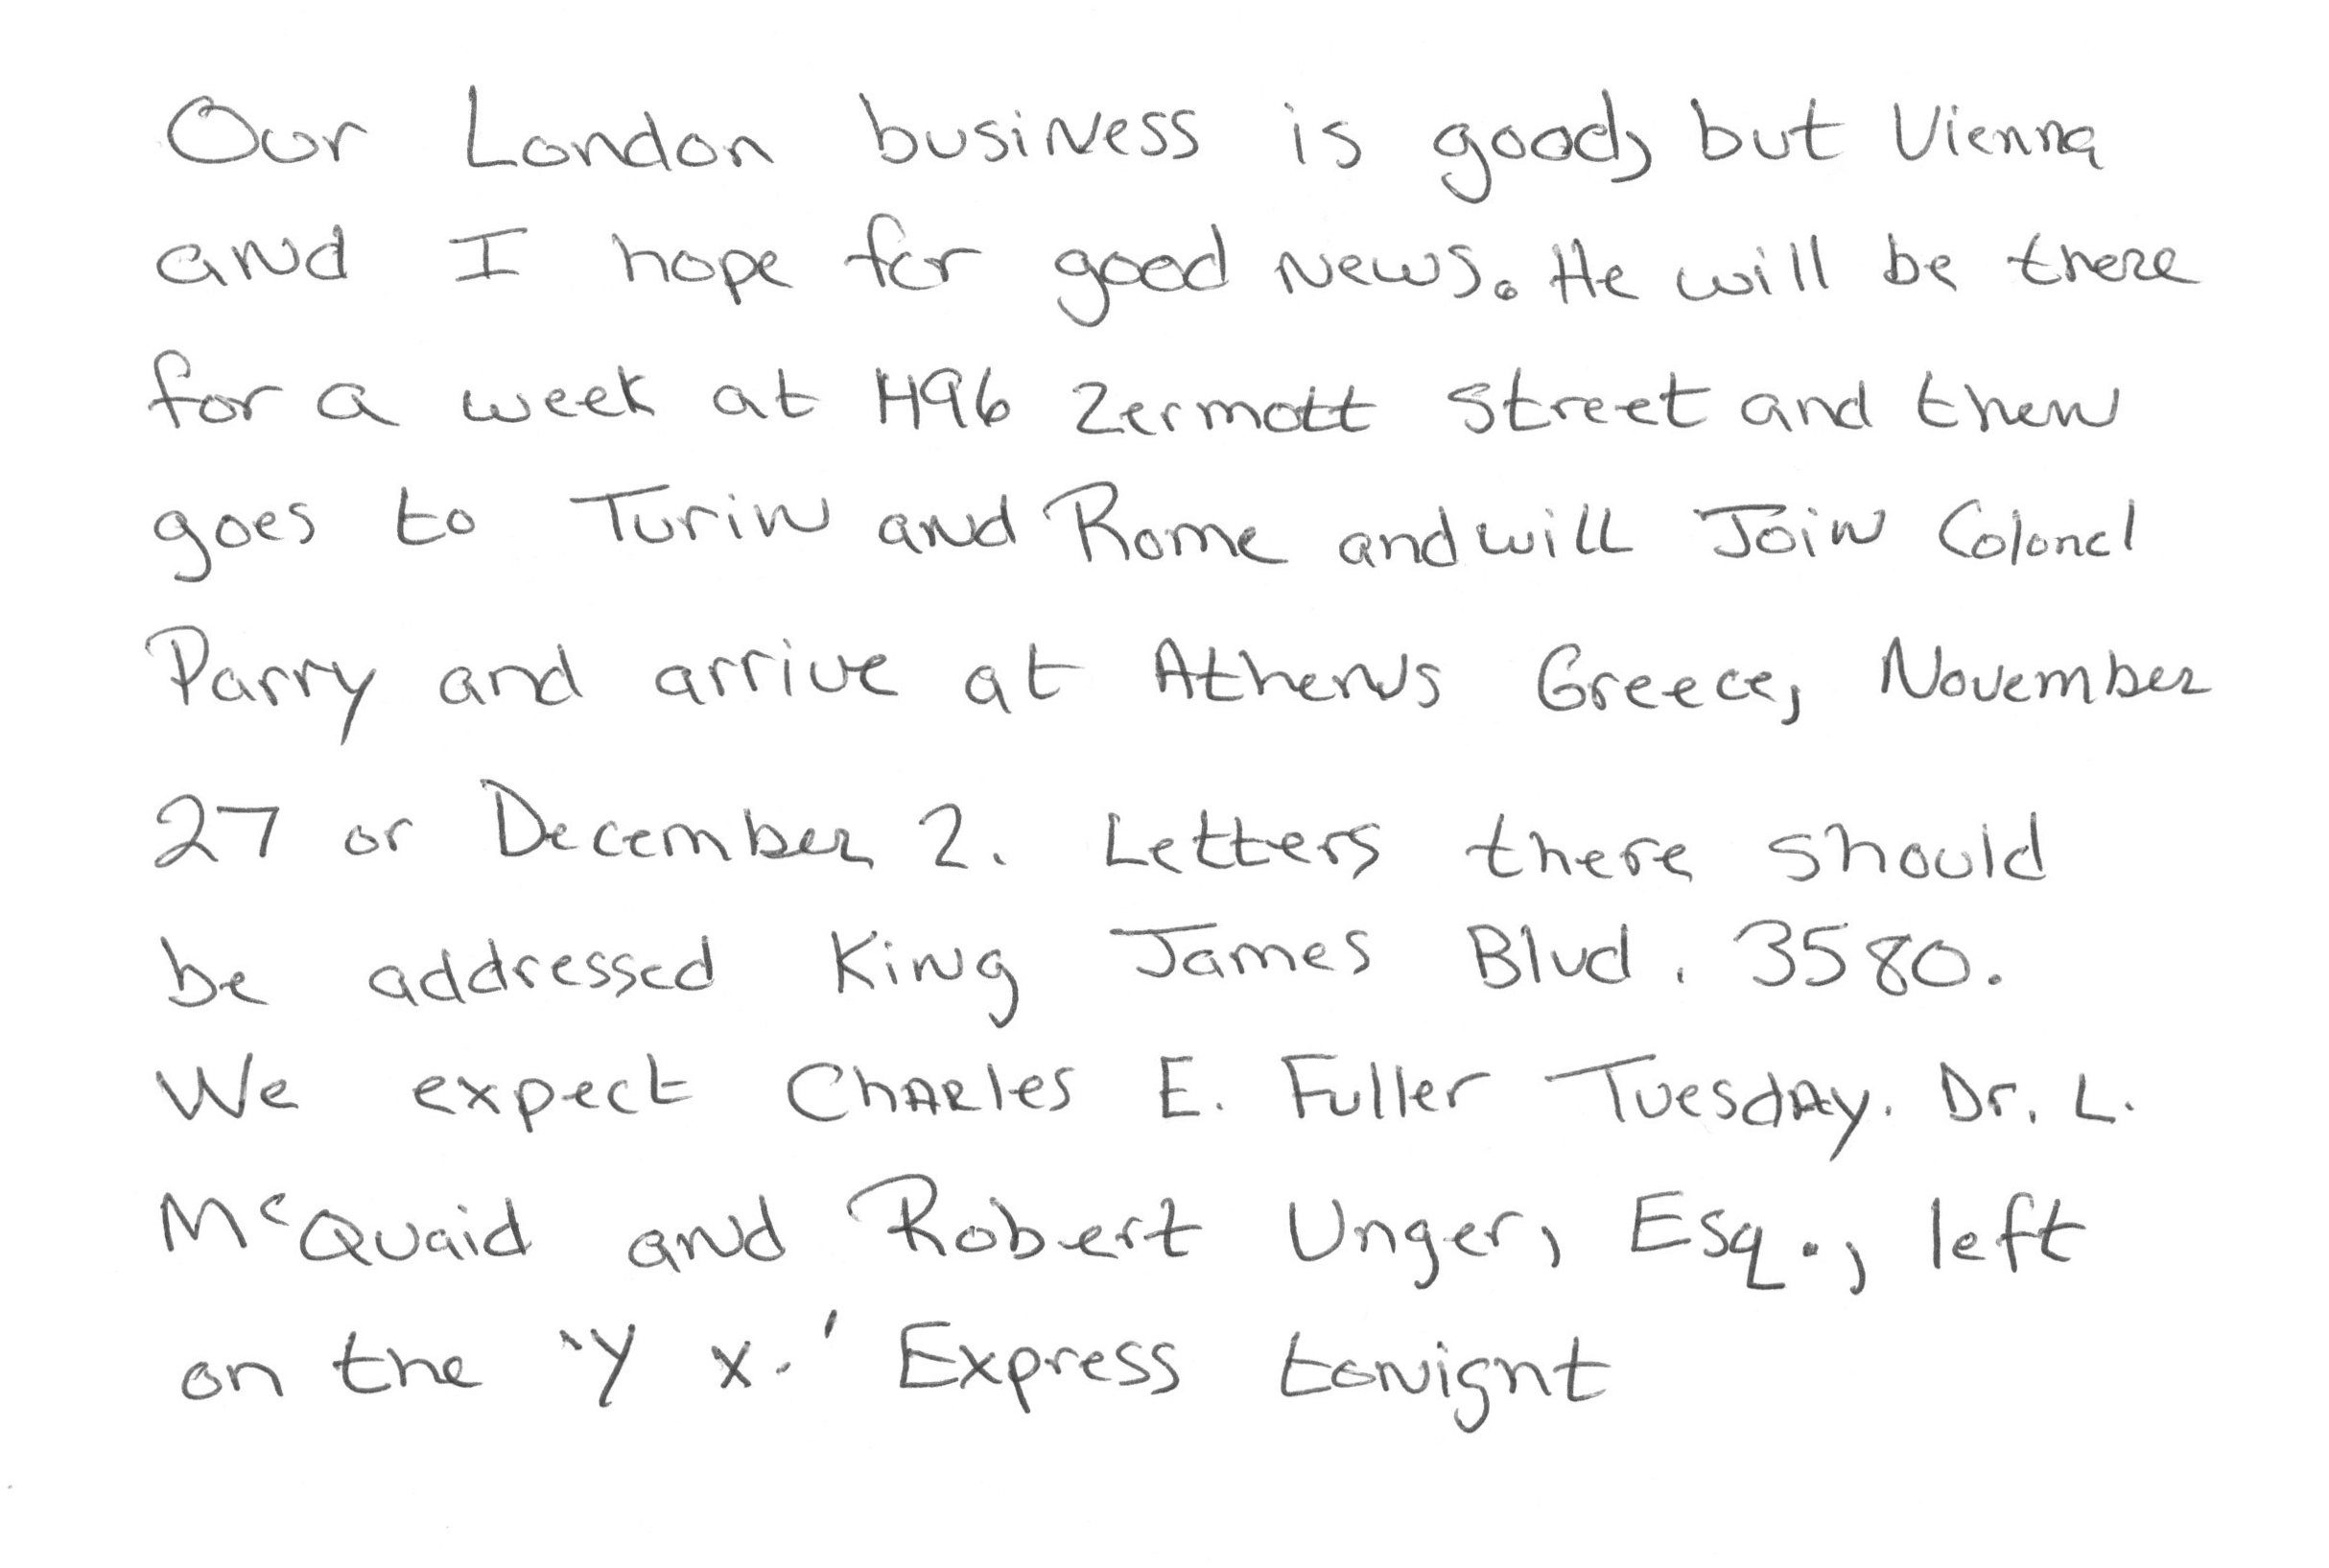 Our London business is good, but Vienna
and I hope for good news. He will be there
for a week at 496 Zermott street and then
goes to Turin and Rome and will Join Colonel
Parry and arrive at Athens Greece, November
27 or December 2. Letters there should
be addressed King James Blvd. 3580.
We expect Charles E. Fuller Tuesday. Dr. L.
McQuaid and Robert Unger, Esq., left
on the 'Y X.' Express tonight